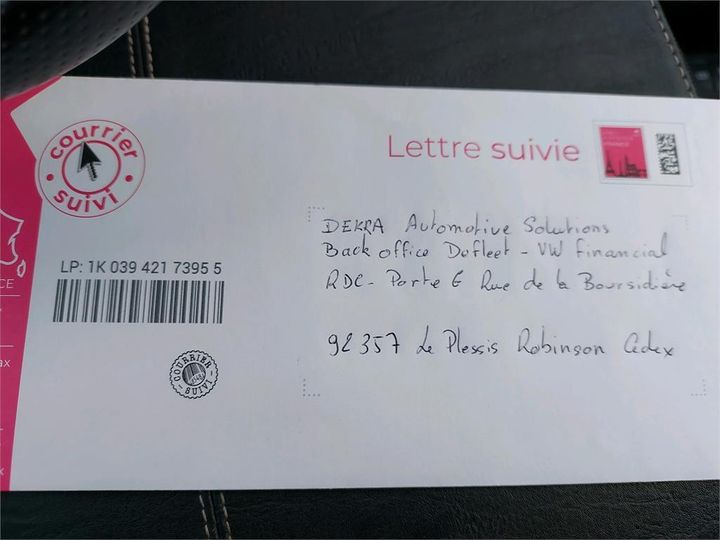 courrier
suivi
Lettre suivie
DEKRA Automotive Solutions
Back office Dofleet - VW Financial
RDC - Porte G Rue de la Boursidière
92357 Le Plessis Robinson Cedex
LP: 1K 039 421 7395 5
COURRIER
SUIVI
CE
ax
x